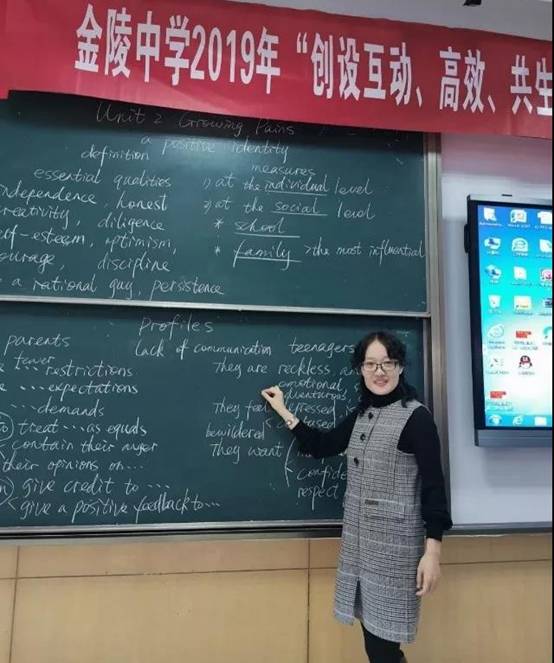 金陵中学2019年“创设互动、高效、共生
Unit 2 Growing Pains
a positive identity
definition
measures
essential qualities
1) at the individual level
independence, honest
creativity, diligence
2) at the social level
self-esteem, optimism,
* school
courage, discipline
* family > the most influential
a rational guy, persistence
Profiles
parents
Lack of communication
teenagers
fewer
... restrictions
They are reckless
emotional,
... expectations
... demands
They
treat ... as equals
bewildered
contain their anger
They want
their opinions on ...
give credit to ...
respect
give a positive feedback to ...